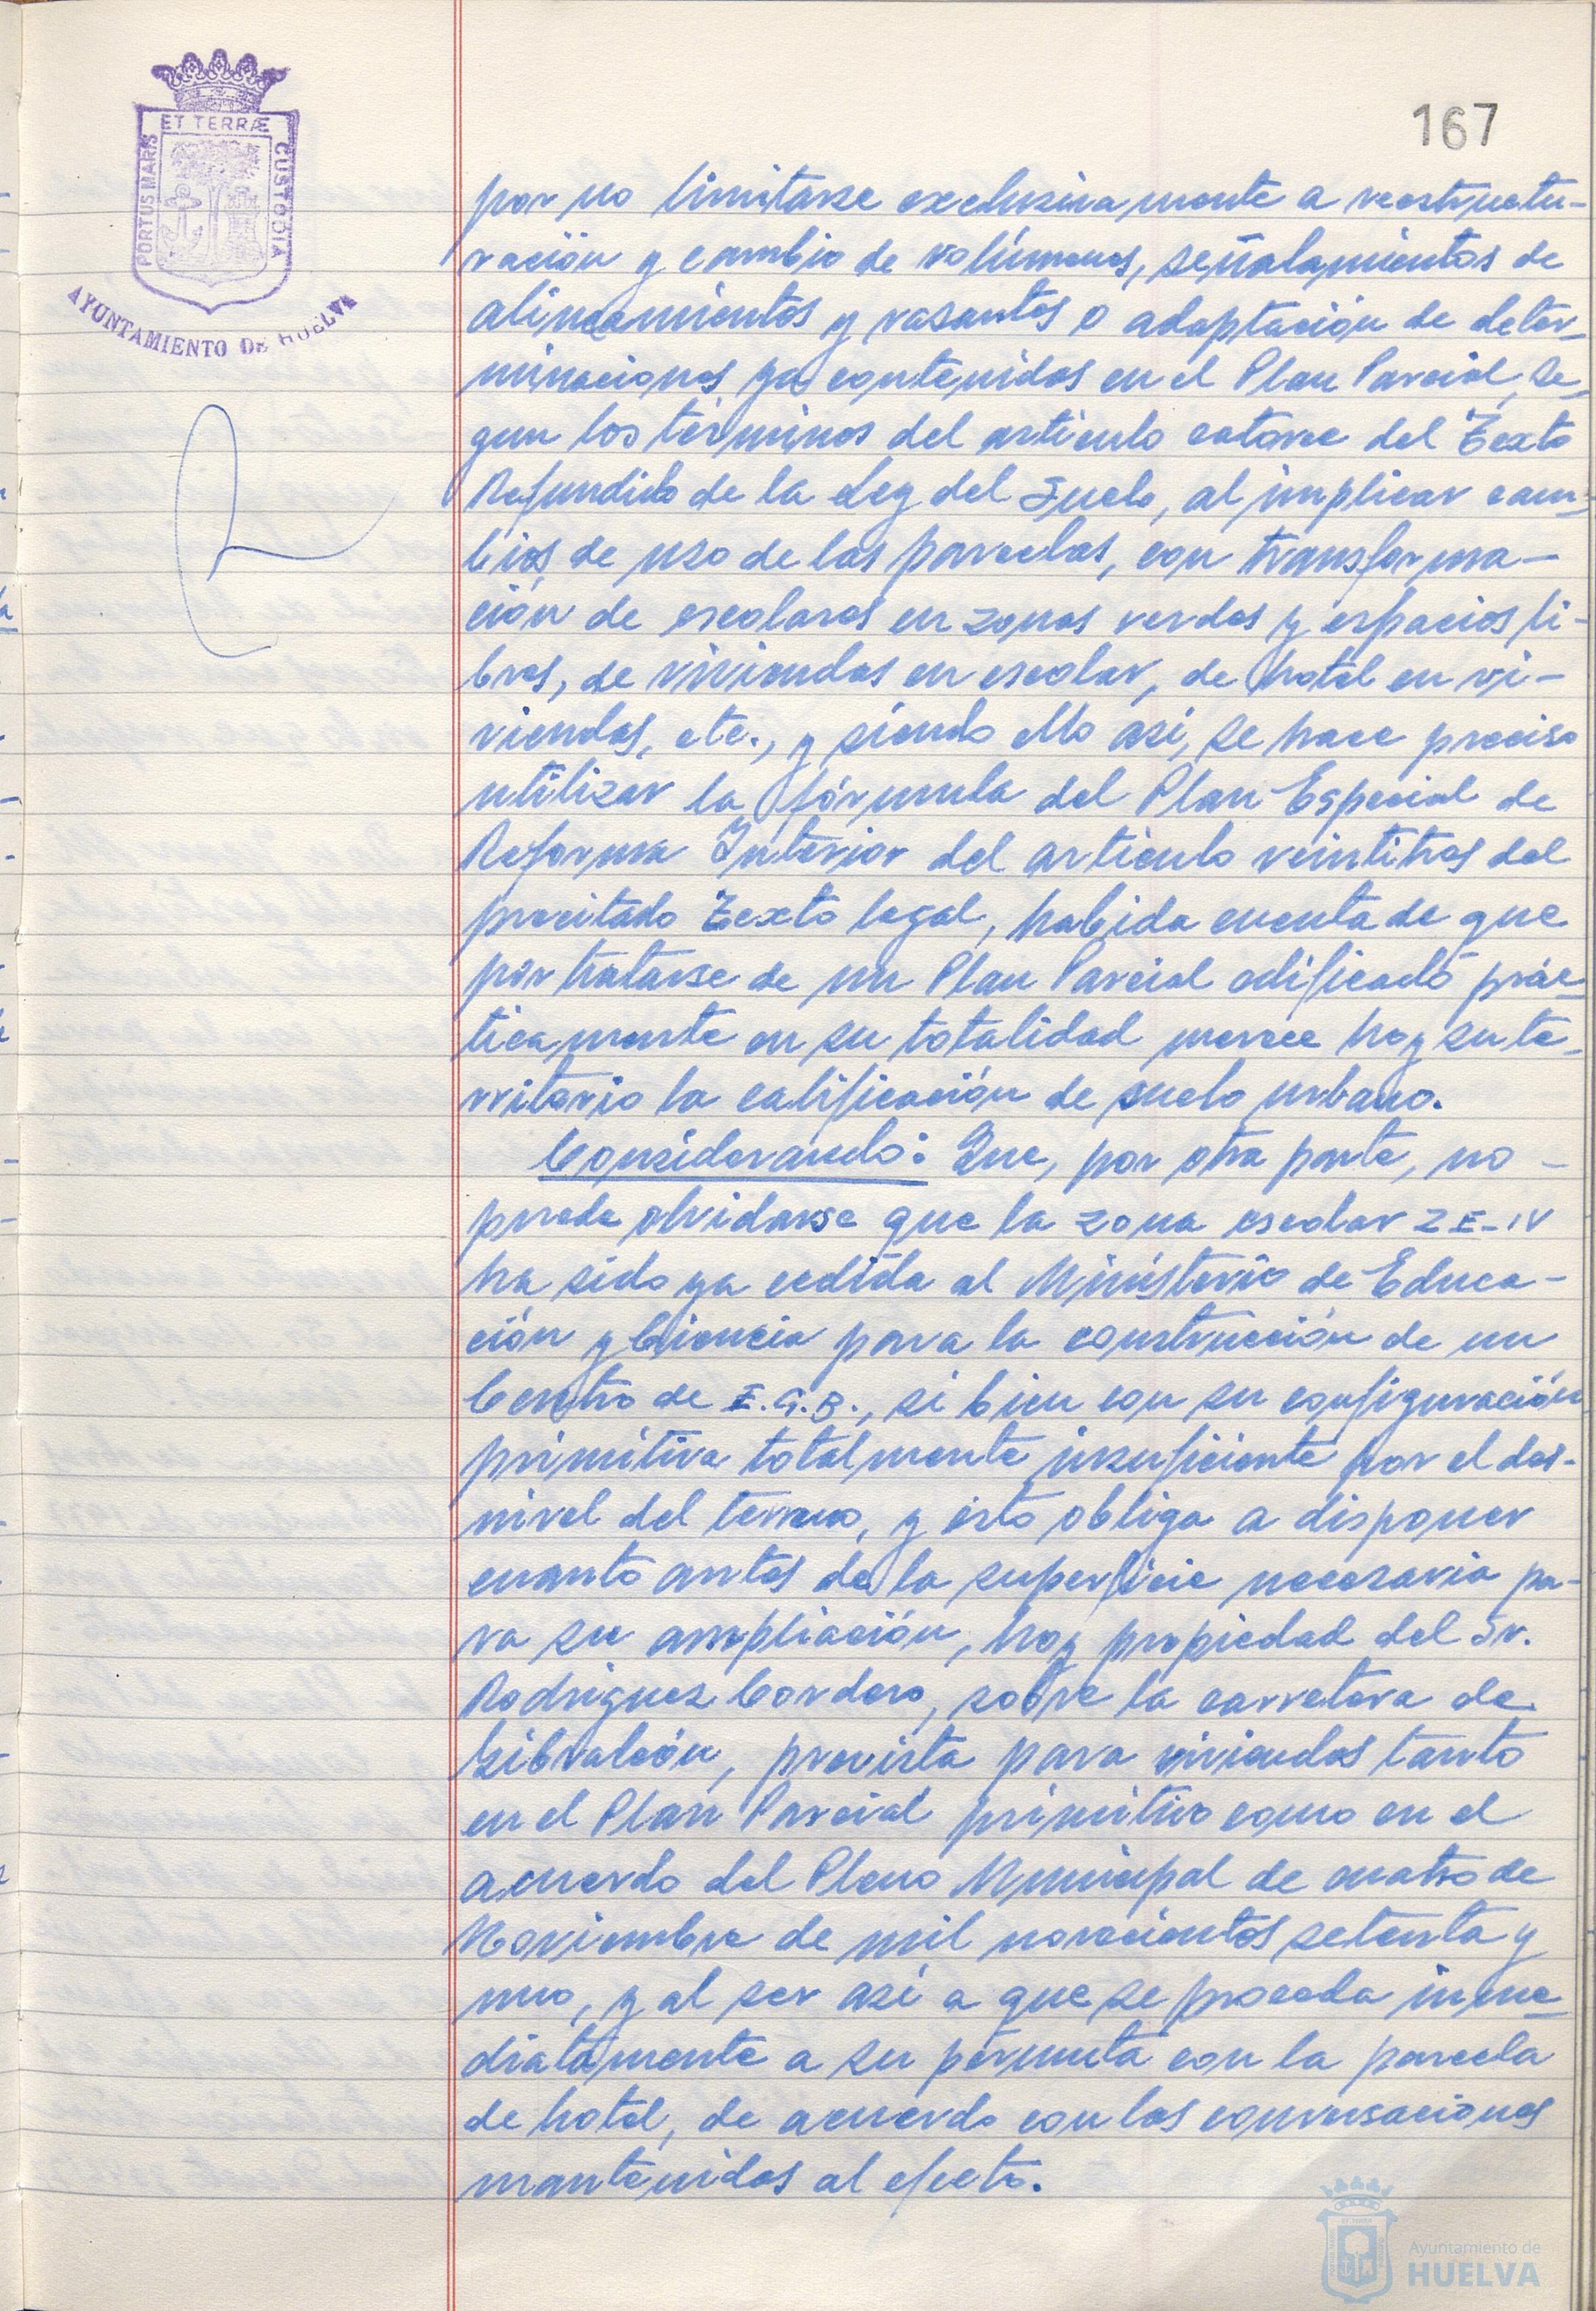 ET TERRÆ
PORTUS MARIS
CUSTODIA
AYUNTAMIENTO DE HUELVA
167
por no limitarse exclusivamente a reestructu-
ración y cambio de volúmenes, señalamientos de
alineamientos y rasantes o adaptación de deter-
minaciones ya contenidas en el Plan Parcial, se-
gun los términos del artículo catorce del Texto
Refundido de la Ley del Suelo, al implicar cam-
bios de uso de las parcelas, con transforma-
ción de escolares en zonas verdes y espacios li-
bres, de viviendas en escolar, de hotel en vi-
viendas, etc., y siendo ello así, se hace preciso
utilizar la fórmula del Plan Especial de
Reforma Interior del artículo veintitres del
precitado Texto legal, habida cuenta de que
por tratarse de un Plan Parcial edificado prác-
ticamente en su totalidad merece hoy su te-
rritorio la calificación de suelo urbano.
Considerando: Que, por otra parte, no -
puede olvidarse que la zona escolar ZE-IV
ha sido ya cedida al Ministerio de Educa-
ción y Ciencia para la construcción de un
Centro de E.G.B., si bien con su configuración
primitiva totalmente insuficiente por el des-
nivel del terreno, y ésto obliga a disponer
cuanto antes de la superficie necesaria pa-
ra su ampliación, hoy propiedad del Sr.
Rodriguez Cordero, sobre la carretera de
Gibraleón, prevista para viviendas tanto
en el Plan Parcial primitivo como en el
acuerdo del Pleno Municipal de cuatro de
Noviembre de mil novecientos setenta y
uno, y al ser así a que se proceda inme-
diatamente a su permuta con la parcela
de hotel, de acuerdo con las conversaciones
mantenidas al efecto.
Ayuntamiento de
HUELVA